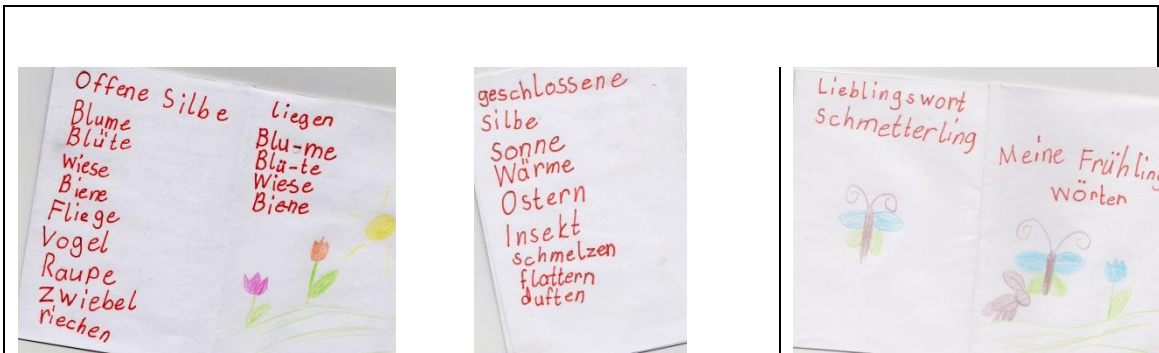 Offene Silbe
Blume
Blüte
Wiese
Biene
Fliege
Vogel
Raupe
Zwiebel
riechen
liegen
Blu-me
Blü-te
Wiese
Biene
geschlossene
Silbe
Sonne
Wärme
Ostern
Insekt
schmelzen
flattern
duften
Lieblingswort
Schmetterling
Meine Frühling
Wörter